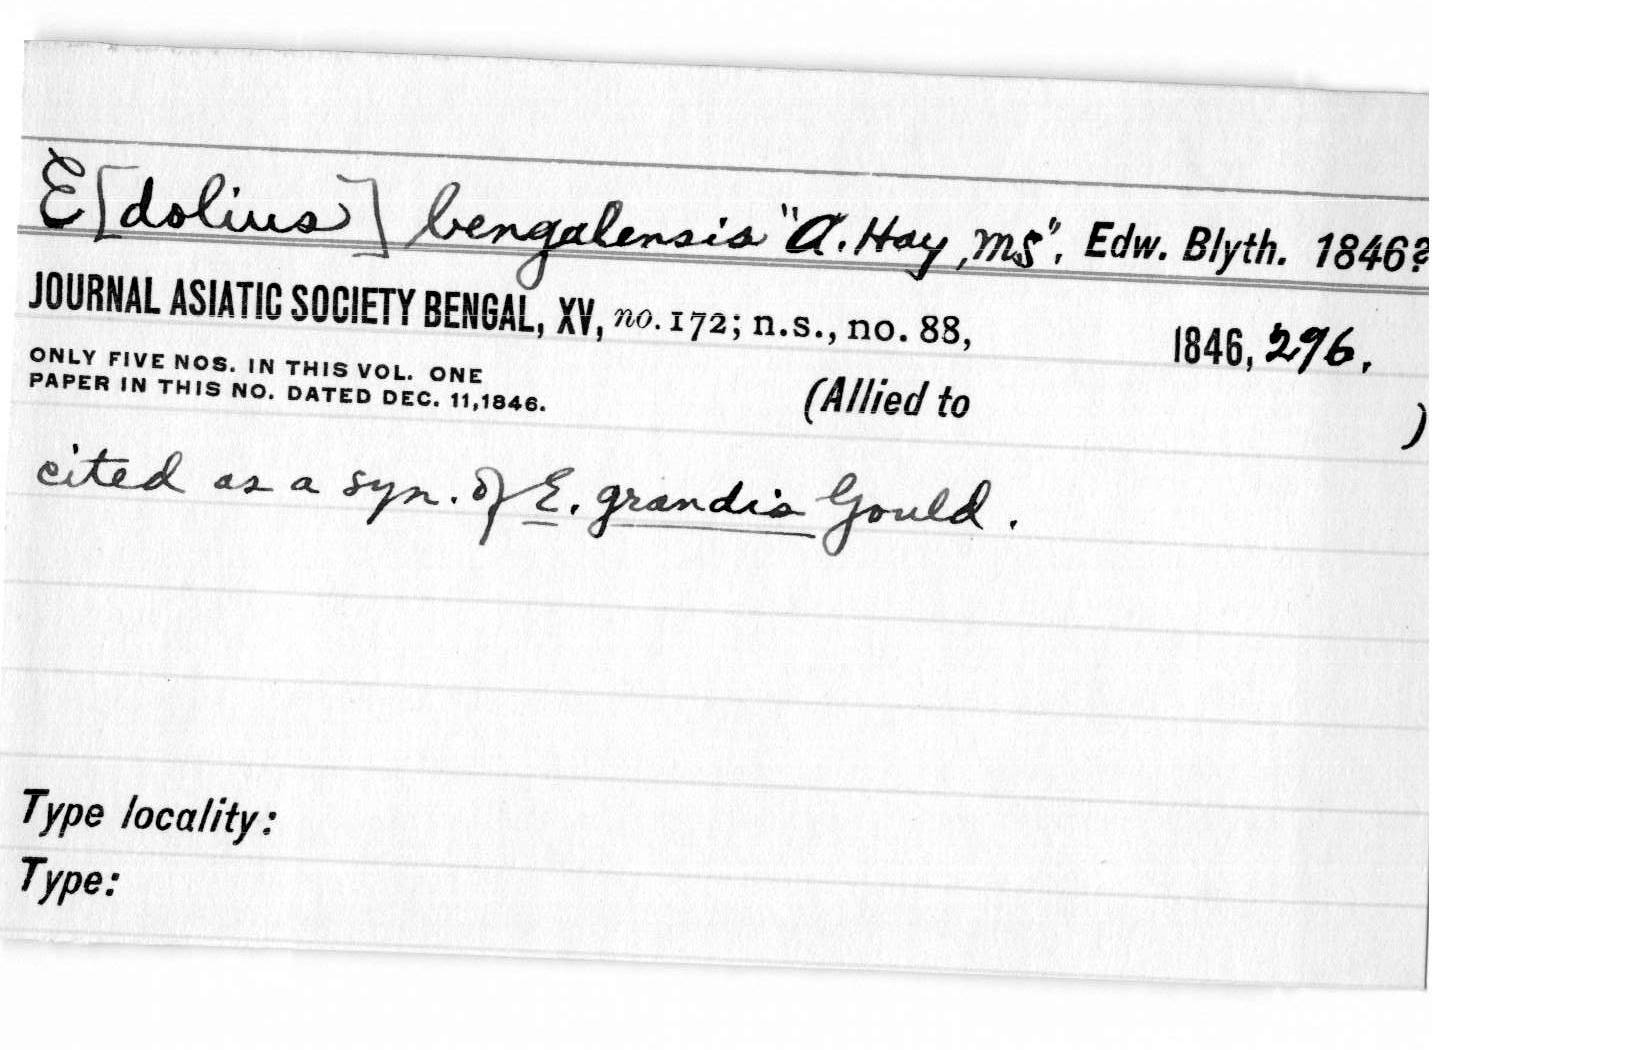 E[dolius] bengalensis "A. Hay, MS", Edw. Blyth. 1846?
JOURNAL ASIATIC SOCIETY BENGAL, XV, no. 172; n.s., no. 88, 1846, 296.
ONLY FIVE NOS. IN THIS VOL. ONE
PAPER IN THIS NO. DATED DEC. 11,1846.
(Allied to )
cited as a syn. of E. grandis Gould.
Type locality:
Type: